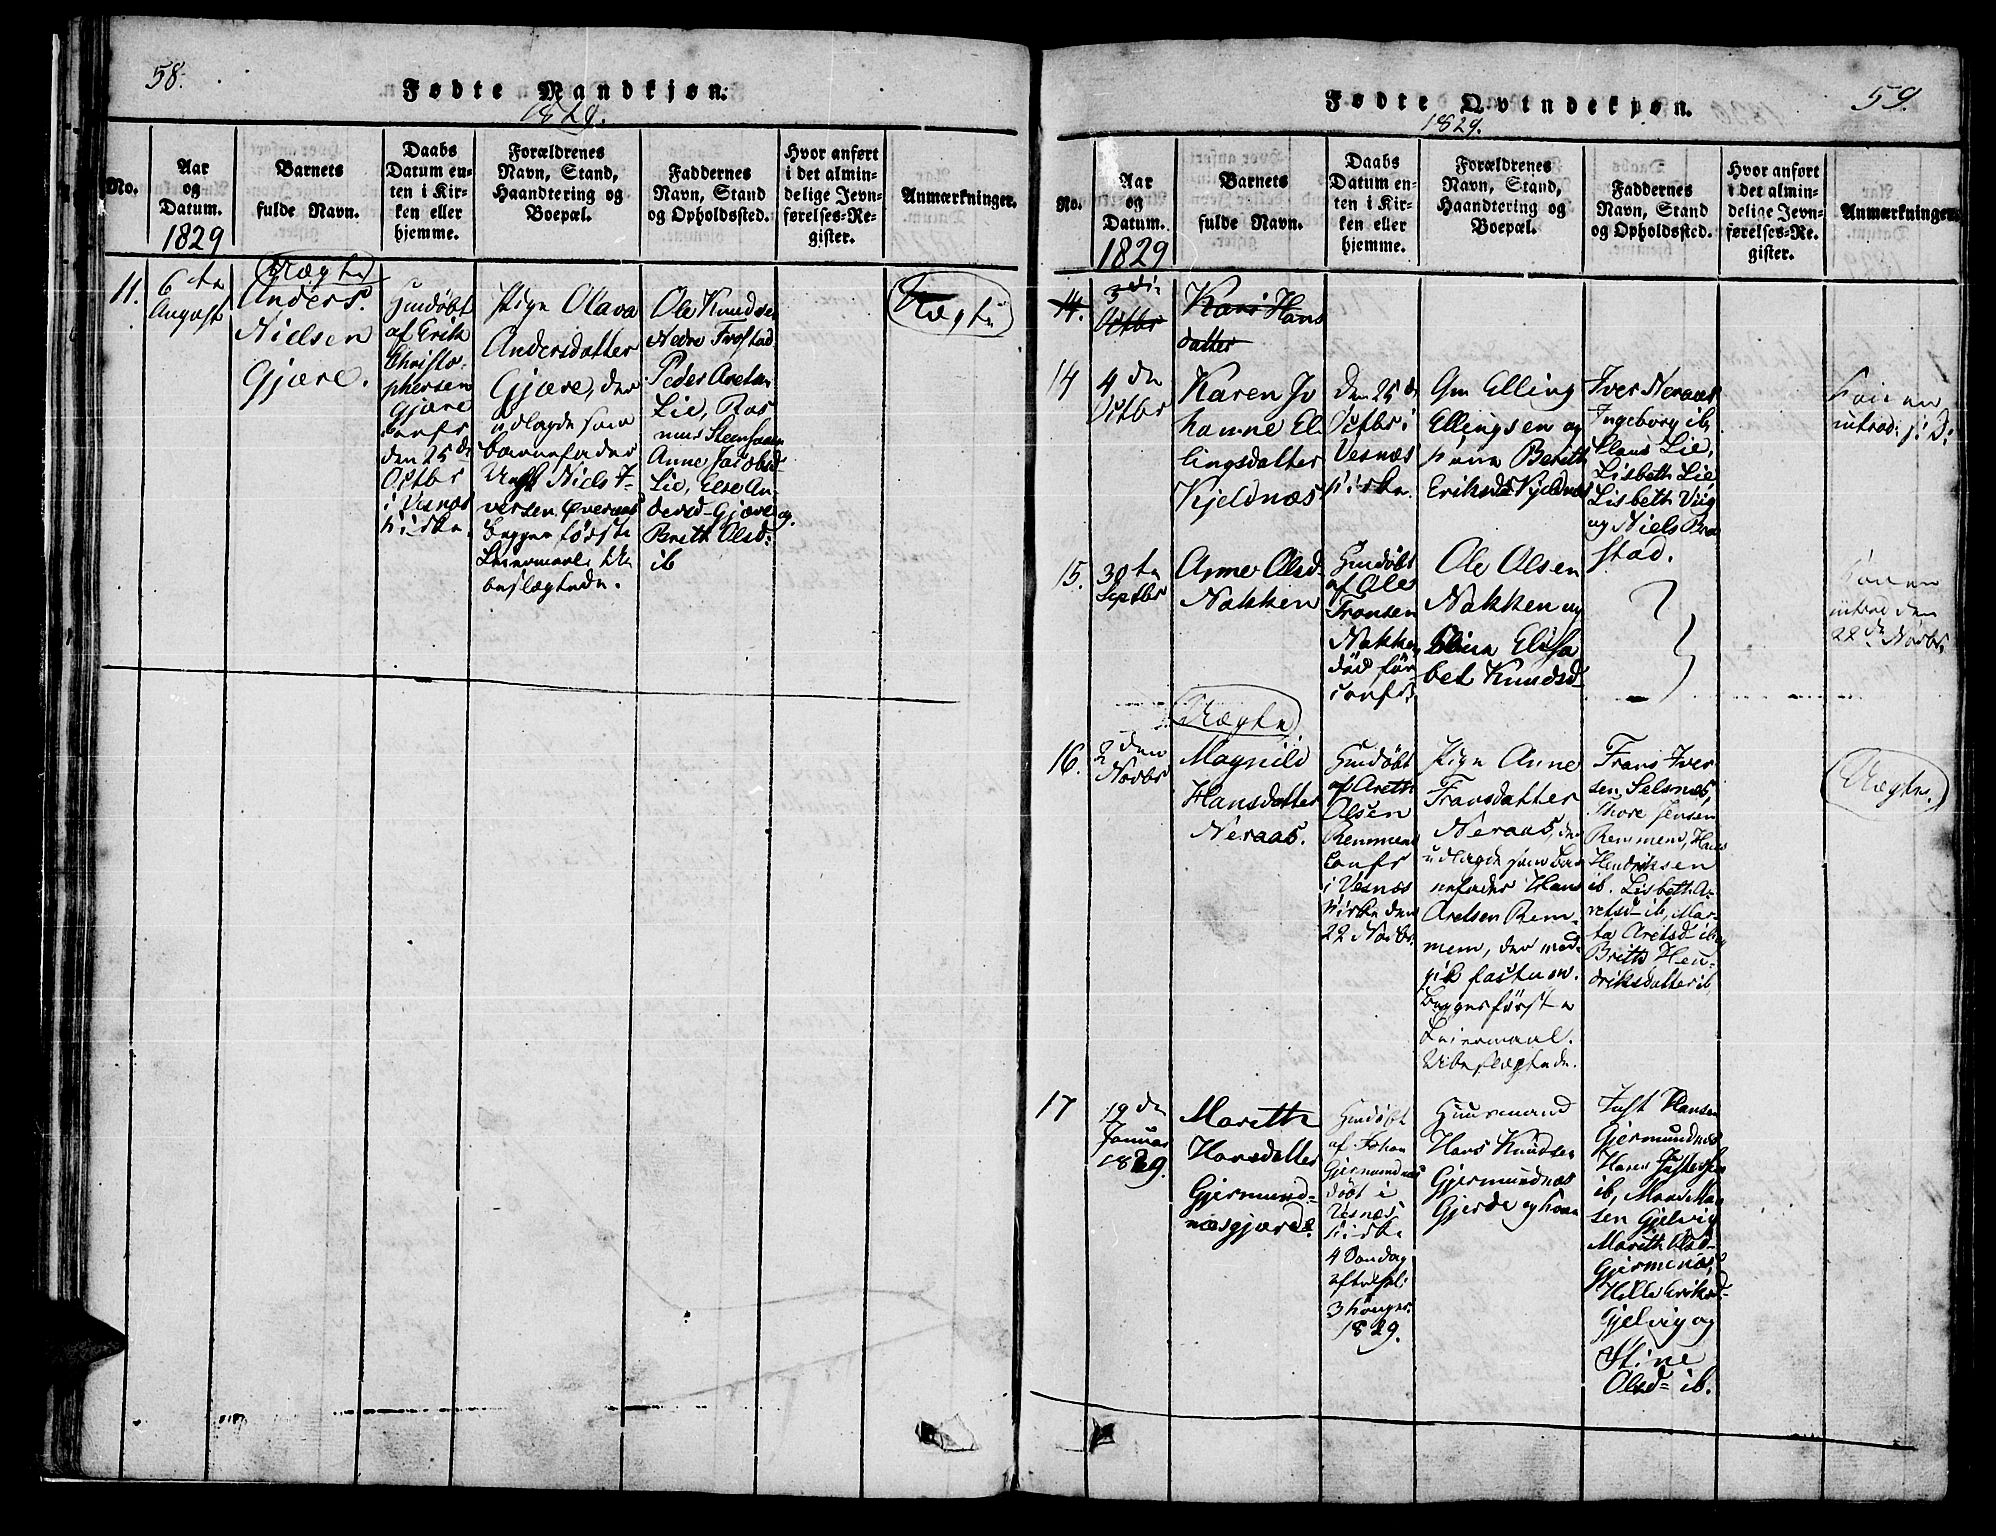 58.
Fødte Mandkjøn.
1829.
No.
Aar
og
Datum.
1829
Barnets
fulde Navn.
Daabs
Datum en-
ten i Kir-
ken eller
hjemme.
Forældrenes
Navn, Stand,
Haandtering og
Boepæl.
Faddernes
Navn, Stand
og Opholdssted.
Hvor anført
i det almin-
delige Jevn-
førelses-Re-
gister.
Anmærkninger.
11.
6te
August
Uægte
Anders
Nielsen
Gjære.
Hiemdøbt
af Erik
Christo-
phersen
Gjære
Confr
den 25de
Octbr
i Vesnæs
Kirke.
Pige Olava
Andersdatter
Gjære, der
udlagde som
barnefader
Niels I-
versen Øveraas
Begges første
Leiermaal. Ube-
beslægtede.
Ole Knudsen
Nedre Frostad
Peder Aretsen
Lie, Ras
mus Steensøen
Anne Jacobsd-
Lie, Else An-
dersd- Gjære og
Brith Olsd:
ib
Uægte
59.
Fødte Qvindekjøn.
1829.
No.
Aar
og
Datum.
1829
Barnets
fulde Navn.
Daabs
Datum en-
ten i Kir-
ken eller
hjemme.
Forældrenes
Navn, Stand,
Haandtering og
Boepæl.
Faddernes
Navn, Stand
og Opholdssted.
Hvor anført
i det almin-
delige Jevn-
førelses-Re-
gister.
Anmærkninger
14.
3die
Octbr
Kari Hans
datter
14
4de
Octbr
Karen Jo
hanne El
lingsdatter
Kjeldnæs
Den 25de
Octbr i
Vesnæs
Kirke.
Gm Elling
Ellingsen og
Berith
Eriksd Kjeldnæs
Iver Neraas
Ingeborg ib,
Claus Lie,
Lisbeth Lie
Lisbeth Viig
og Niels Bra
stad.
Konen
introd:
15.
30te
Septbr
Anne Olsd-
Nakken
Hiemdøbt
af Ole
Fransen
Nakken
død før
confr.
Ole Olsen
Nakken og
Elisa
bet Knudsd-
Konen
introd den
22de Novbr.
16.
2den
Novbr
Uægte
Magnild
Hansdatter
Neraas.
Hiemdøbt
af Areth
Olsen
Remmem
Confr
i Vesnæs
Kirke den
22 Novbr.
Pige Anne
Fransdatter
Neraas, der
udlagde som bar
nefader Hans
Aretsen Rem-
mem, der
Begges første
Leiermaal.
Ubeslægtede.
Frans Iver
sen, Selsnæs,
Thore Jensen
Remmem, Hans
Hendriksen
ib. Lisbeth A-
retsd- ib, Mar-
ta Aretsd- ib,
Brith Hen-
driksdatter ib,
Uægte.
17
19de
Januar
1829.
Mareth
Hansdatter
Gjermund-
næsgjærde.
Hiemdøbt
af Johan
Gjermundnæs
døbt i
Vesnæs
Kirke
4 Søndag
efter
1829.
Huusmand
Hans Knudsen
Gjermundnæs
Gjerde og kone
Just Hansen
Gjermundnæs
Hans Justesen
ib, Mons Mon
sen Gjelvig
Mareth Olsd-
Gjermenæs,
Hille Eriksd-
Gjelvig og
Stine
Olsd- ib.